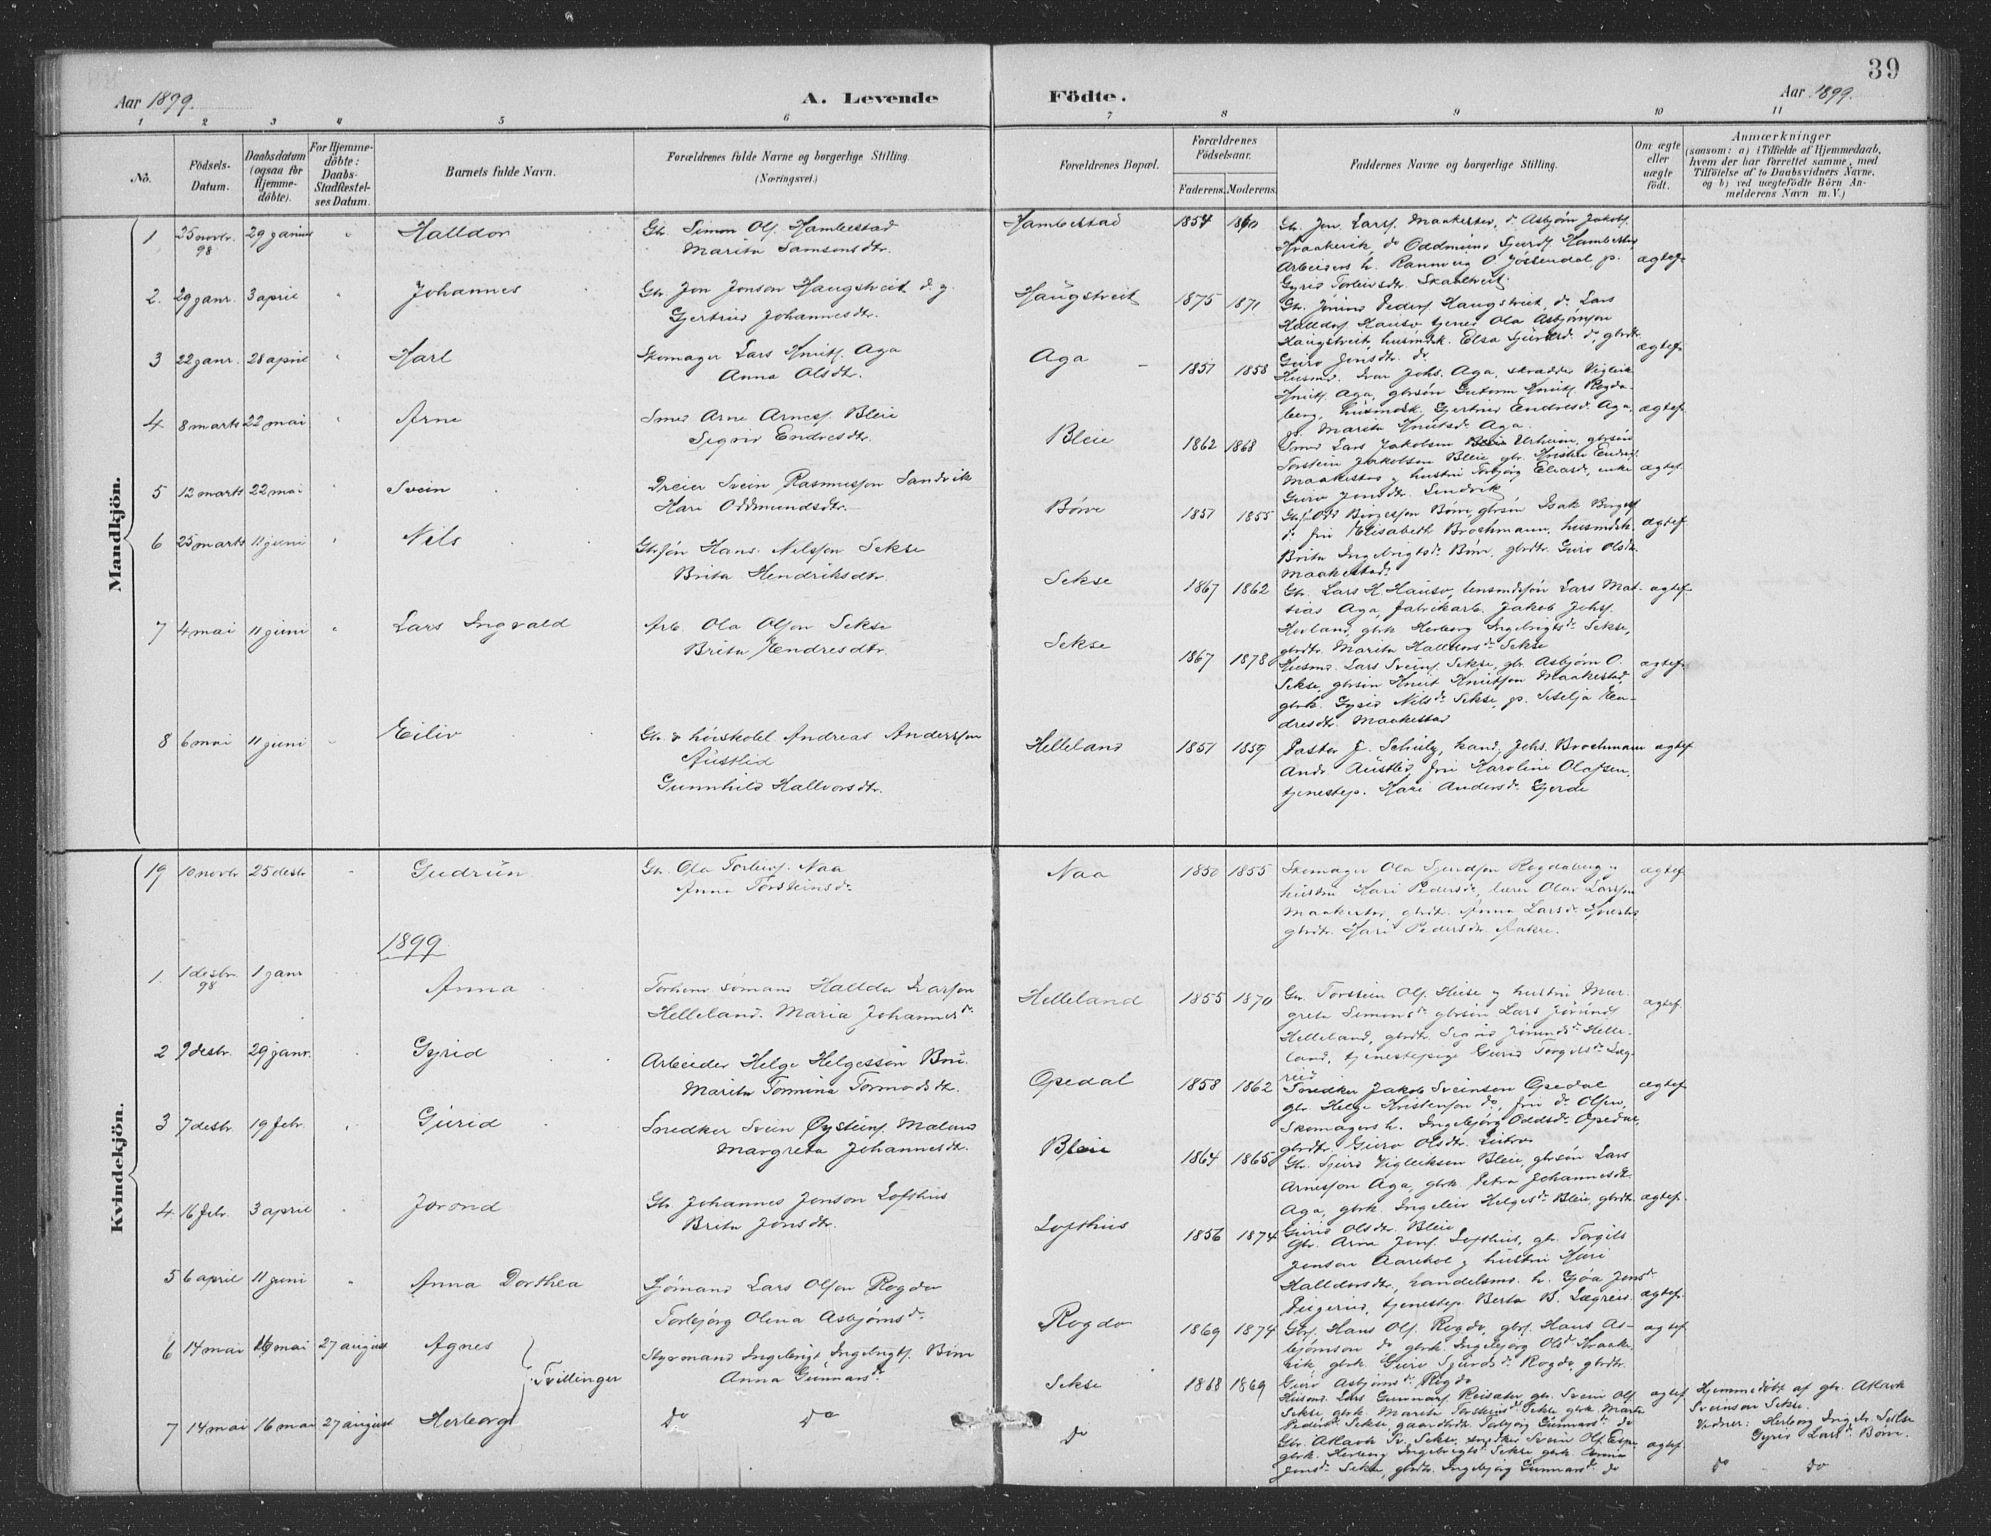 39
Aar 1899.
A. Levende Födte.
Aar 1899.
1 2 3 4 5 6 7 8 9 10 11
No.
Födsels-Datum.
Daabsdatum (ogsaa for Hjemme-döbte).
For Hjemme-döbte: Daabs-Stadfæstel-ses Datum.
Barnets fulde Navn.
Forældrenes fulde Navne og borgerlige Stilling.
(Næringsvei.)
Forældrenes Bopæl.
Forældrenes Födselsaar.
Faderens. Moderens.
Faddernes Navne og borgerlige Stilling.
Om ægte eller uægte födt.
Anmærkninger
(saasom: a) i Tilfælde af Hjemmedaab, hvem der har forrettet samme, med Tilföielse af to Daabsvidners Navne, og b) ved uægtefödte Börn An-melderens Navn m.V.)
Mandkjön.
1 25 novbr. 98 29 januar " Halldor
Gbr. Simon Ols. Hambestad
Marita Samsonsdtr.
Hambestad 1854 1860
Gbr. Jon Larss. Maakestad, do Asbjørn Jakobs.
Kraakevik, do Oddmund Sjurds. Hambestad
Arbeiders h. Rannveig O. Jøssendal, p.
Gyrid Torleivsdtr. Skaaltveit
ægtef.
2. 29 janr. 3 april " Johannes
Gbr. Jon Jonson Haugstveit o. g.
Gjertrud Johannesdtr.
Haugstveit 1875 1871
Gbr. Jørund Peders. Haugstveit, do Lars
Halldors. Hauso, tjener Ola Asbjørnson
Haugstveit, husmdk. Elsa Sjursd. do, gbrdtr.
Guro Jonsdtr. do
ægtef.
3 22 janr. 28 april " Karl
Skomager Lars Knuts. Aga
Anna Olsdtr.
Aga 1851 1858
Husmd. Ivar Johs. Aga, skrædder Vigleik
Knuts. Aga, gbrsøn Guttorm Knuts. Rogda-
berg, husmdk. Gjertrud Endresd. Aga,
p. Marita Knutsd. Aga.
ægtef.
4 8 marts 22 mai " Arne
Smed Arne Arness. Bleie
Sigrid Endresdtr.
Bleie 1862 1868
Smed Lars Jakobsen Urheim, gbrsøn
Torstein Jakobsen Bleie, gbr. Kristen Endres.
Maakestad g hustru Torbjørg Eliasd., enke
Guro Jonsdtr. Sandvik
ægtef.
5 12 marts 22 mai Svein
Dreier Svein Rasmusson Sandvik
Kari Oddmundsdtr.
Børve 1851 1855
Gbr. Odd Birgesson Børve, gbrsøn Isak Birges.
do fru Elisabeth Brochmann, husmdk.
Brita Ingebrigtsd. Børve, gbrdtr. Guro Olsdtr.
Maakestad
ægtef.
6 25 marts 11 juni " Nils
Gbrsøn Hans Nilsson Sekse
Brita Hendriksdtr.
Sekse 1867 1862
Gbr. Lars H. Hauso, lensmdssøn Lars Mat-
tias Aga, fabrikarb. Jakob Johs.
Hovland, gbrk. Herborg Ingebrigtsd. Sekse,
gbrdtr. Marita Halldorsd. Sekse
ægtef.
7 4 mai 11 juni " Lars Ingvald
Arb. Ola Olson Sekse
Brita Endresdtr.
Sekse 1867 1878
Husmd. Lars Sveins. Sekse, gbr. Asbjørn O.
Sekse, gbrsøn Knut Knutson Maakestad
gbrk. Gyrid Nilsd. Sekse, p. Seselja En-
dresdtr. Maakestad
ægtef.
8 6 mai 11 juni " Eiliv
Gbr. & høiskolel. Andreas Andersson
Austlid
Gunnhild Hallvorsdtr.
Helleland 1851 1859
Pastor J. Schulz, kand. Johs. Brochmann
Andr. Austlid, fru Karoline Olafsen,
tjenestep. Kari Andersd. Gjerde
ægtef.
Kvindekjön.
19 10 novbr 25 desbr " Gudrun
Gbr. Ola Torleivs. Naa
Anna Torsteinsdr.
Naa 1850 1855
Skomager Ola Sjurdson Rogdaberg g
hustru Kari Pedersd., lærer Olav Larsson
Maakestad, gbrdtr. Anna Larsd.
gbrdtr. Kari Pedersdtr.
ægtef.
1899
1. 1 desbr. 98 1 janr Anna
sømand Halldor Ivarson
Helleland. Maria Johannesd.
Helleland 1855 1870
Gbr. Torstein Ols. Huse g hustru Mar-
greta Simonsd. gbrsøn Lars Jørunds.
Helleland, gbrdtr. Sigrid Jørundsd. Helle-
land, tjenestepige Gurid Torgilsd. Læg-
reid
ægtef.
2 9 desbr. 29 janr. " Gyrid
Arbeider Helge Helgesson Bru
Marita Tormina Tormodsdtr.
Opedal 1858 1862
Snedker Jakob Sveinson Opedal
gbr. Helge Kristenson do, fru do Olsen,
Skomagers h. Ingebjørg Oddsd. Opedal,
gbrdtr. Guro Olsdtr. Lutro
ægtef.
3 7 desbr. 19 febr. " Gurid
Snedker Svein Øysteins. Maland
Margreta Johannesdtr.
Bleie 1864 1865
Gbr. Sjurd Vigleikson Bleie, gbrsøn Lars
Arnesson Aga, gbrk. Petra Johannesdtr.
Aga, gbrk. Ingeleiv Helgesd. Bleie, gbrdtr.
Gurid Olsdtr. Bleie
ægtef.
4 16 febr. 3 april " Jorond
Gbr. Johannes Jonson Lofthus
Brita Jonsdtr.
Lofthus 1856 1874
Gbr. Arne Jons. Lofthus, gbr. Torgils
Jonson Aarekol g hustru Kari
Halldorsdtr., handelsms. h. Gjøa Jonsd.
tjenestep. Berta B. Lægreid
ægtef.
5 6 april 11 juni " Anna Dorthea
Sjømand Lars Olson Rogdo
Torbjørg Olina Asbjørnsd.
Rogdo 1869 1874
Gbrs. Hans Ols. Rogdo, gbrs. Hans As-
bjørnson do gbrk. Ingebjørg Olsd. Kraake-
vik gbrk. Guro Sjurdsd. Rogdo, gbrdtr.
Guro Asbjørnsd. Rogdo
ægtef.
6 14 mai 16 mai 27 august Agnes
Tvillinger
Styrmand Ingebrigt Ingebrigts. Børve
Anna Gunnarsd.
Sekse 1868 1869
Husmd. Lars Gunnars. Reisæter, gbr. Svein Ols.
Sekse, gbrk. Marita Torsteinsd. Sekse, gbrk. Marta
Pedersd. Sekse, gaardbdtr. Torbjørg Gunnarsd. do
ægtef.
Hjemmedøbt af gbr. Aslak
Sveinson Sekse.
Vidner: Herborg Ingebr. Sekse
Gyrid Larsd. Børve.
7 14 mai 16 mai 27 august Herborg
do do
do
Gbr. Aslak Sv. Sekse, snedker Svein Ols. Espe,
gbrk. Herborg Ingebrigtsd. Sekse, gbrk. Anna
Jonsd. Sekse, gbrdtr. Ingebjørg Gunnarsd. do
ægtef.
do do